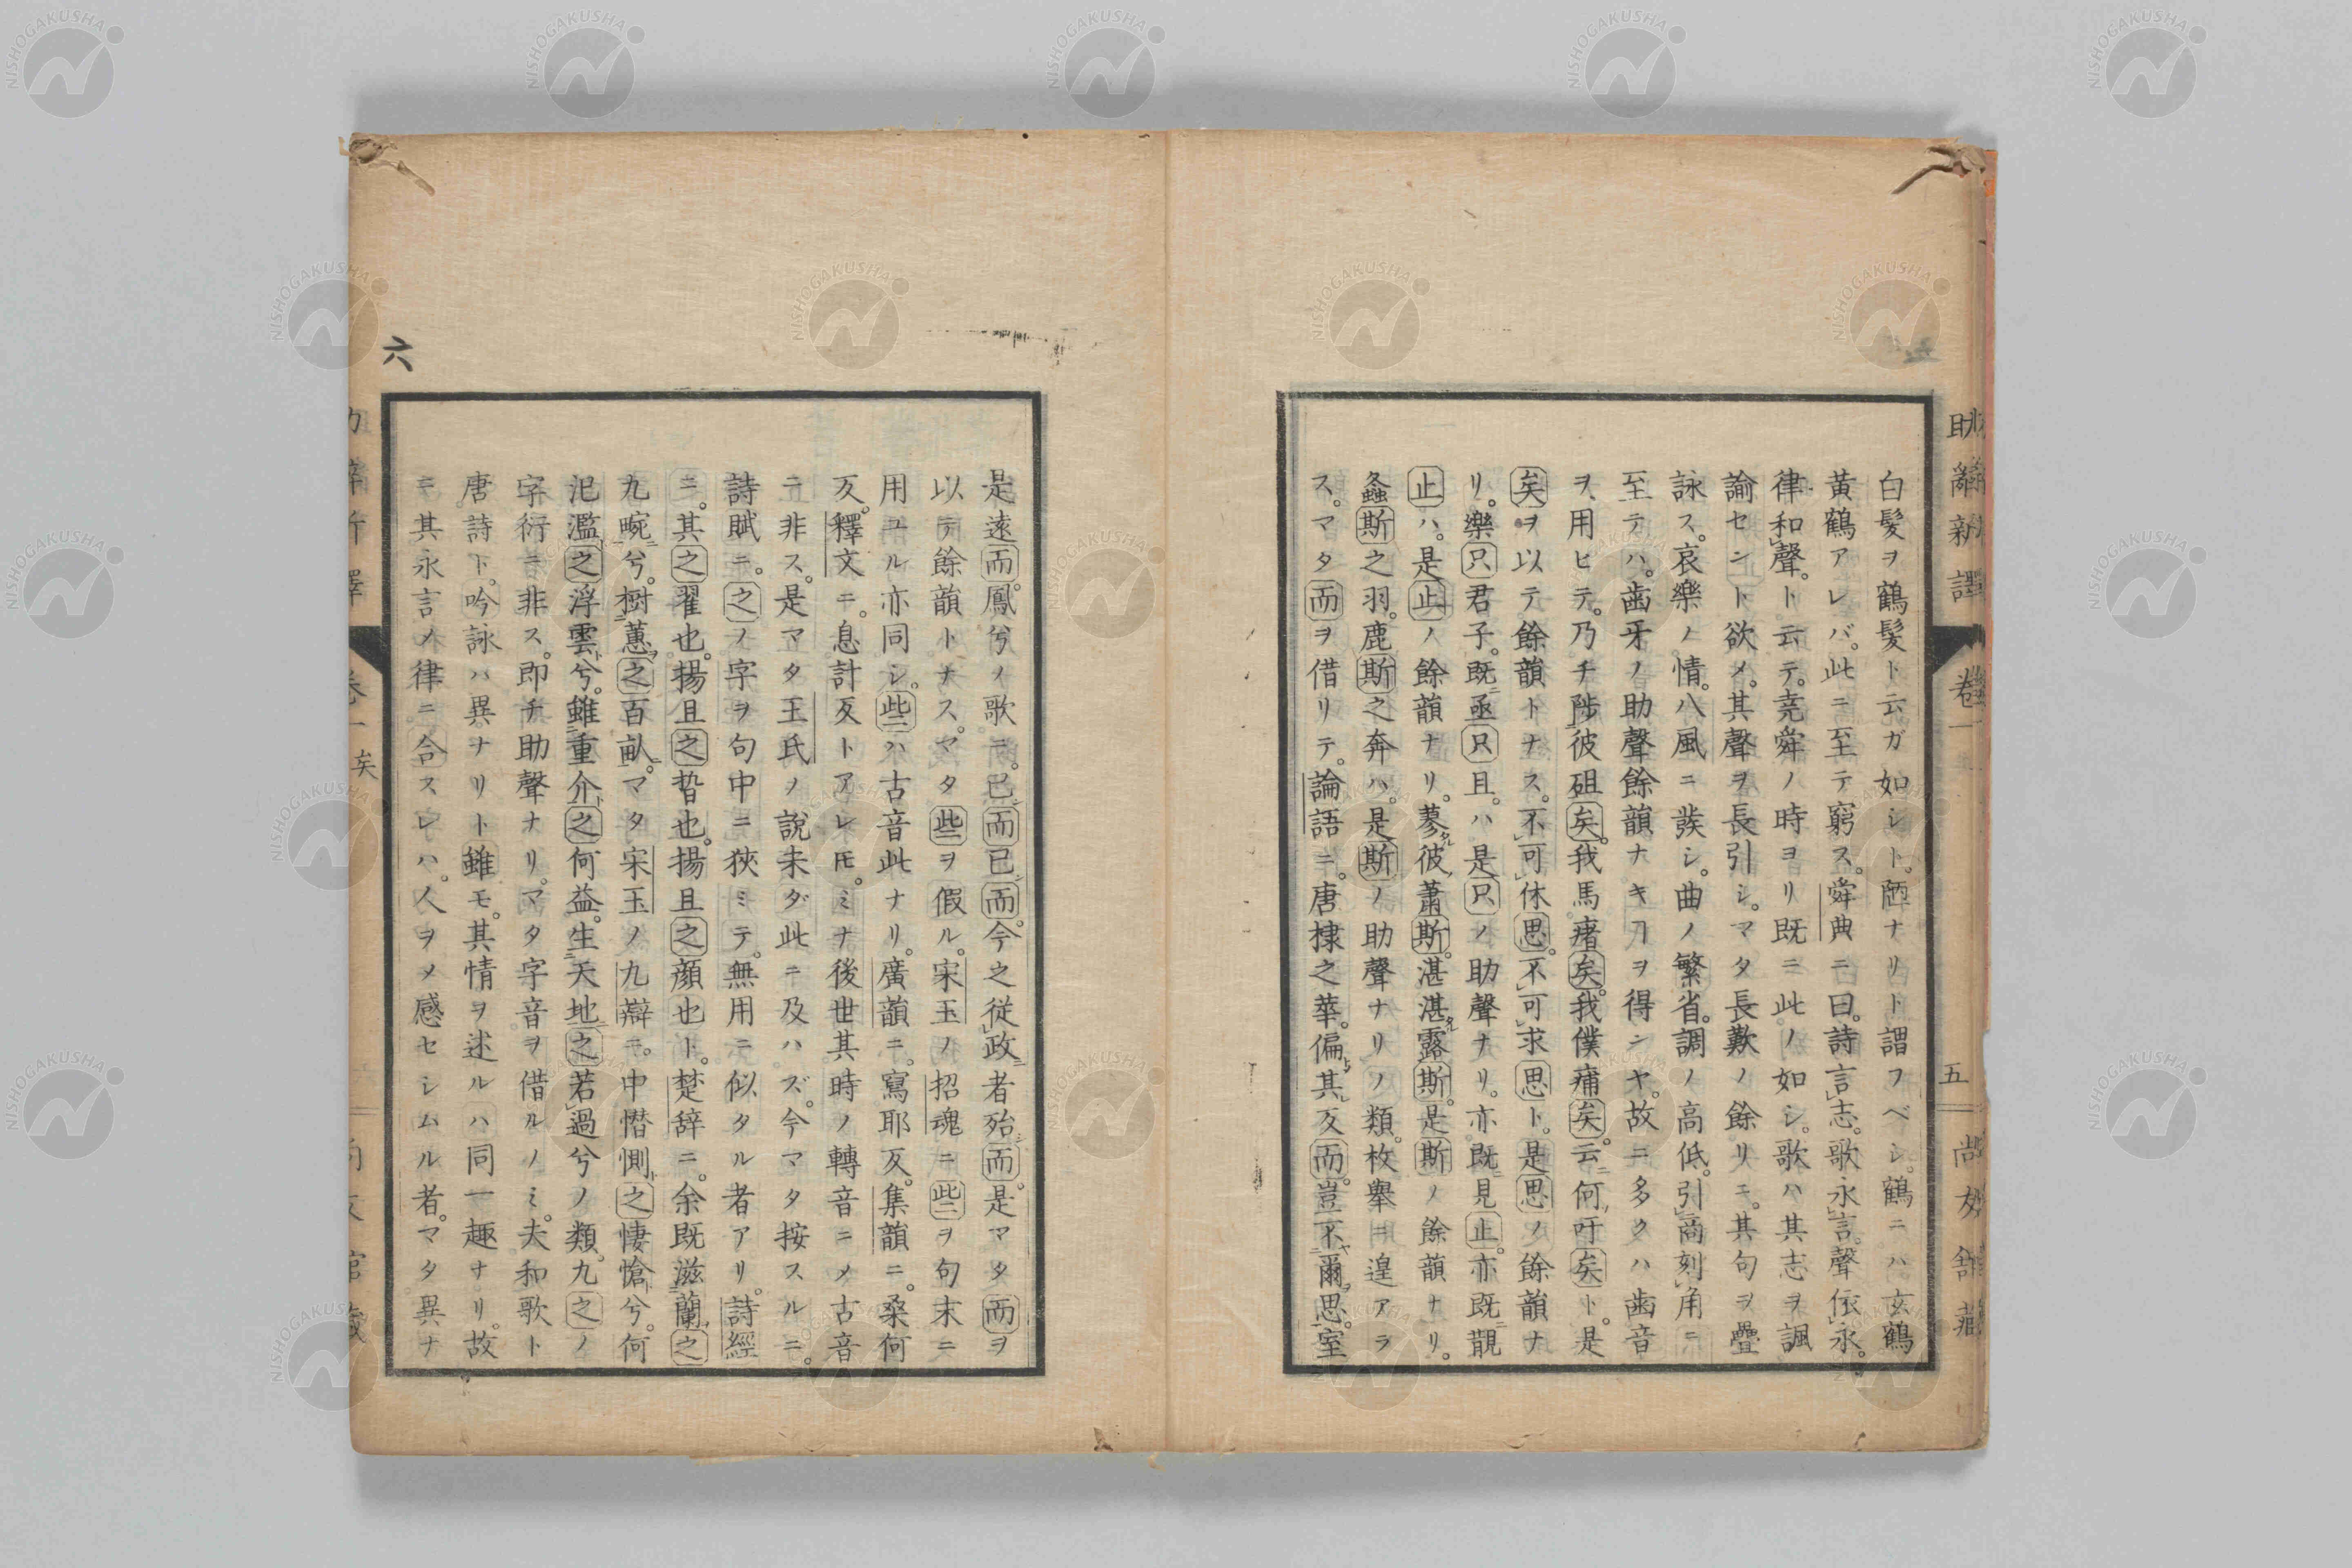 白髮ヲ鶴髮ト云ガ如シト。陋ナリト謂フベシ。鶴ニハ玄鶴
黃鶴アレバ。此ニ至テ窮ス。舜典ニ曰。詩言志。歌永言。聲依永。
律和聲。ト云テ。尭舜ノ時ヨリ既ニ此ノ如シ。歌ハ其志ヲ諷
諭セント欲メ。其聲ヲ長引シ。マタ長歎ノ餘リニ。其句ヲ疊
詠ス。哀樂ノ情。八風ニ發シ。曲ノ繁省。調ノ高低。引商刻角ニ
至テハ。齒牙ノ助聲餘韻ナキヿヲ得ンヤ。故ニ多クハ齒音
ヲ用ヒテ。乃チ陟彼砠矣。我馬瘏矣。我僕痡矣。云何吁矣ト。是
矣ヲ以テ餘韻トナス。不可休思。不可求思ト。是思ノ餘韻ナ
リ。樂只君子。既亟只且。ハ是只ノ助聲ナリ。亦既見止。亦既覯
止ハ。是止ノ餘韻ナリ。蓼彼蕭斯。湛湛露斯。是斯ノ餘韻ナリ。
螽斯之羽。鹿斯之奔ハ。是斯ノ助聲ナリノ類。枚舉ニ遑アラ
ス。マタ而ヲ借リテ。論語ニ。唐棣之華。偏其反而。豈不爾思。室
是遠而。鳳兮ノ歌ニ。已而已而。今之從政者殆而。是マタ而ヲ
以テ餘韻トナス。マタ些ヲ假ル。宋玉ノ招魂ニ些ヲ句末ニ
用ユル亦同シ。些ハ古音此ナリ。廣韻ニ。寫耶反。集韻ニ。桑何
反。釋文ニ。息計反トアレ𪜈。ミナ後世其時ノ轉音ニメ古音
ニ非ス。是マタ王氏ノ說未ダ此ニ及ハズ。今マタ按スルニ。
詩賦ニ。之ノ字ヲ句中ニ狹ミテ。無用ニ似タル者アリ。詩經
ニ。其之翟也。揚且之晳也。揚且之顏也ト。楚辞ニ。余既滋蘭之
九畹兮。樹蕙之百畝。マタ宋玉ノ九辯ニ。中憯惻之悽愴兮。何
氾濫之浮雲兮。雖重介之何益。生天地之若過兮ノ類。九之ノ
字衍ニ非ス。即チ助聲ナリ。マタ字音ヲ借ルノミ。夫和歌ト
唐詩ト。吟詠ハ異ナリト雖モ。其情ヲ述ルハ同一趣ナリ。故
ニ其永言メ律ニ合スレハ。人ヲメ感セシムル者。マタ異ナ
六
卷一
五